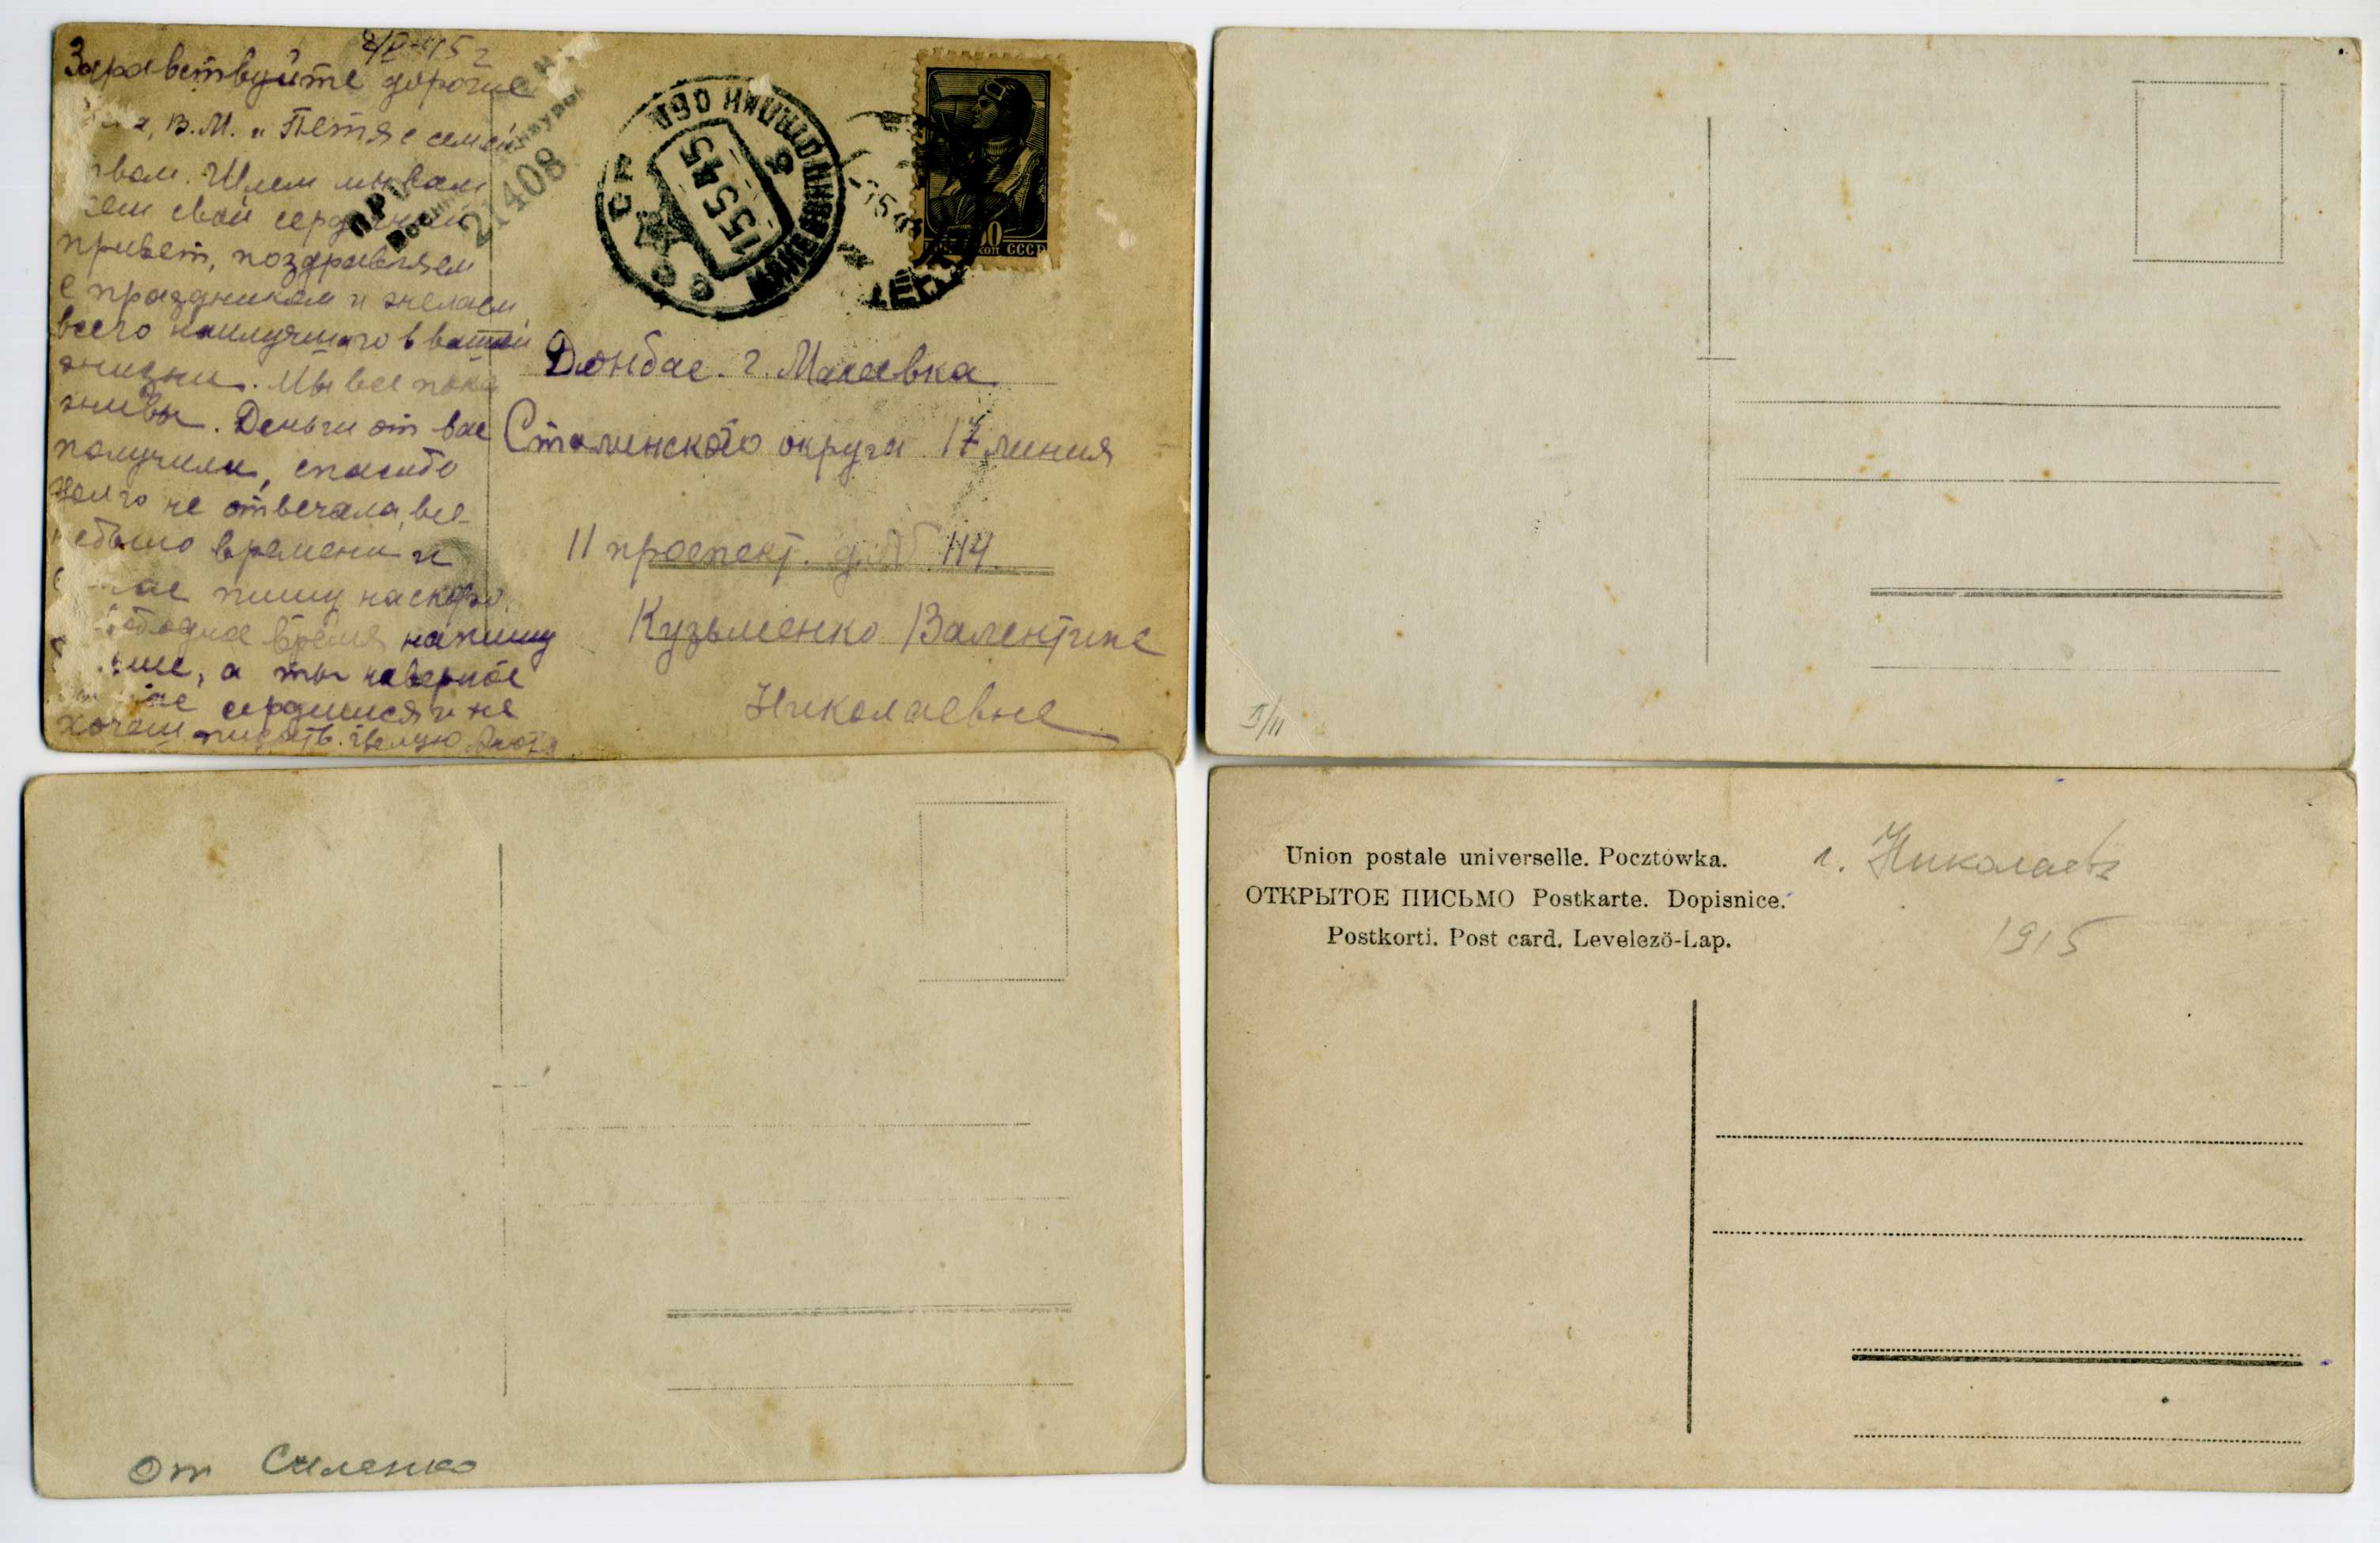 Здравствуйте дорогие
В.М. и Петя с семей
Шлем мы вам
свой сердечный
привет, поздравляем
с праздником и желаем
всего наилучшего в вашей
жизни. Мы все пока
живы. Деньги от вас
получили, спасибо
долго не отвечала, все
времени и
пишу наскоро.
время напишу
а ты наверное
сердишся и не
хочеш писать. Целую
21408
МАКЕЕВКА
15 5 45
КОП СССР
Донбас. г. Макеевка
Сталинского округа 17 линия
11 проспект. 114.
Кузьменко Валентине
Николаевне
II/11
От Силенко
Union postale universelle. Pocztówka.
ОТКРЫТОЕ ПИСЬМО Postkarte. Dopisnice.
Postkorti. Post card. Levelezö-Lap.
г. Николаев
1915